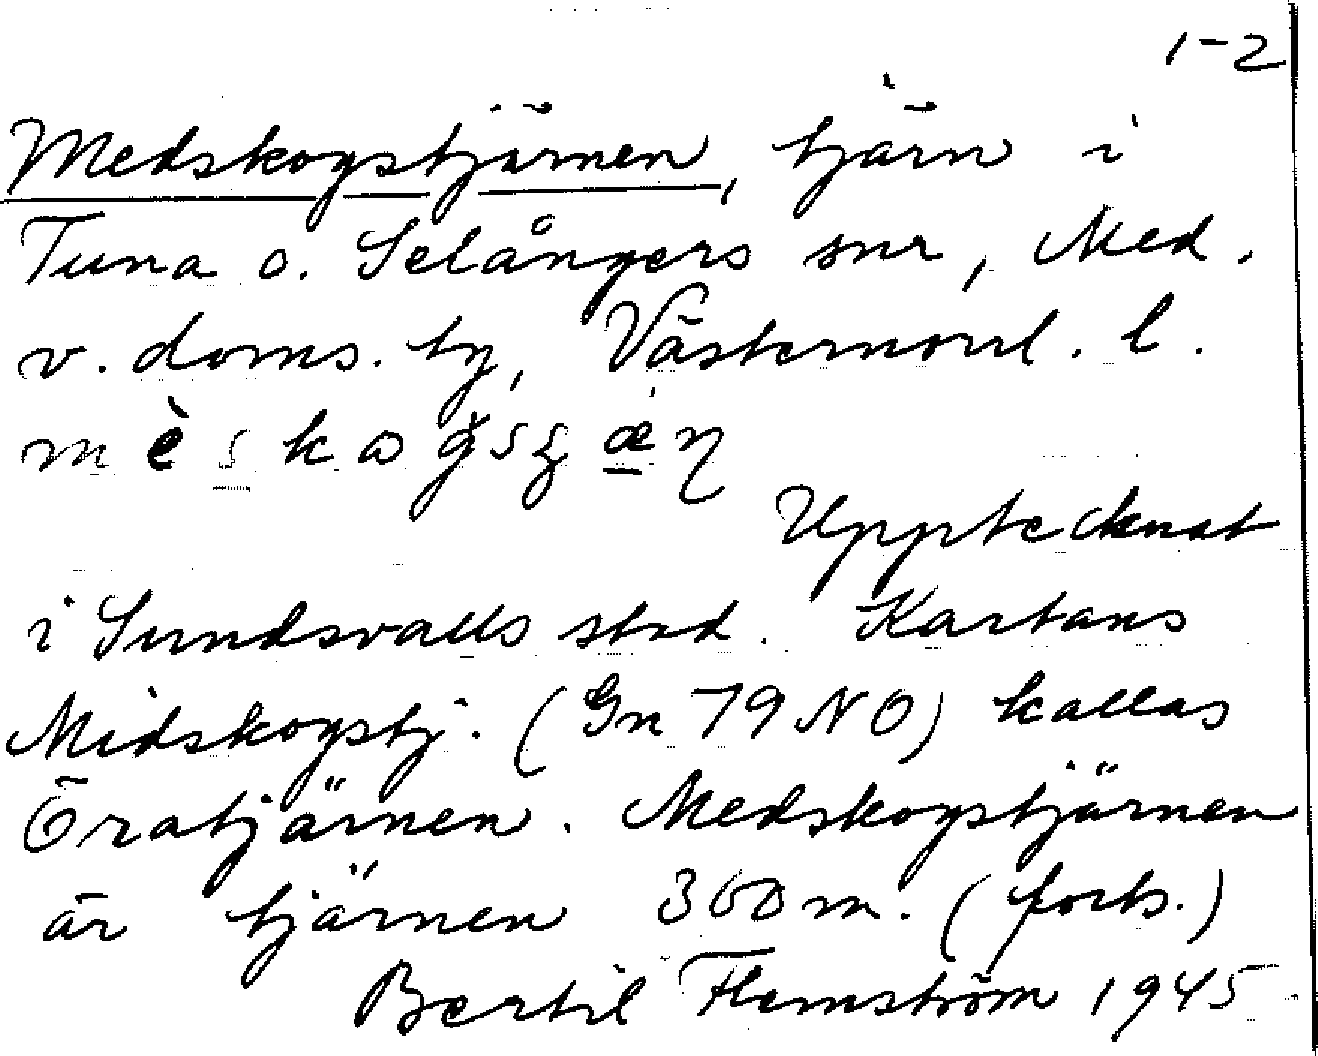 1-2
Medskogstjärnen, tjärn i
Tuna o. Selångers snr, Med.
v. doms. tj, Västernorrl. l.
i Sundsvalls stad. Kartans
Midskogstj. (Gn 79 NO) kallas
Öratjärnen. Medskogstjärnen
är tjärnen 360 m. (forts.)
Bertil Flemström 1945